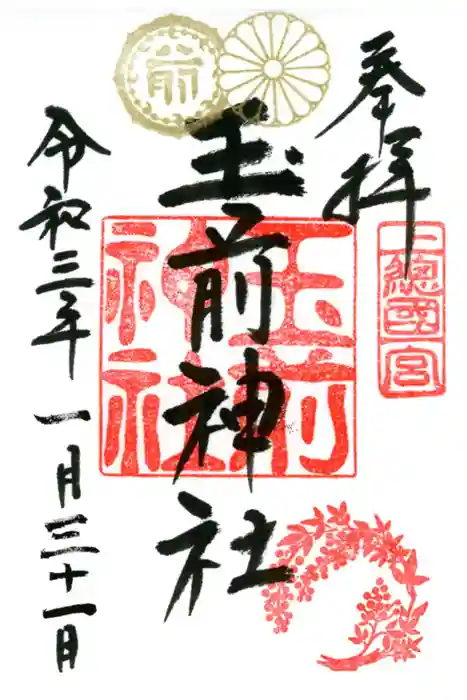 奉拝
上総國一宮
玉前神社
玉前
神社
前
令和三年 一月三十一日